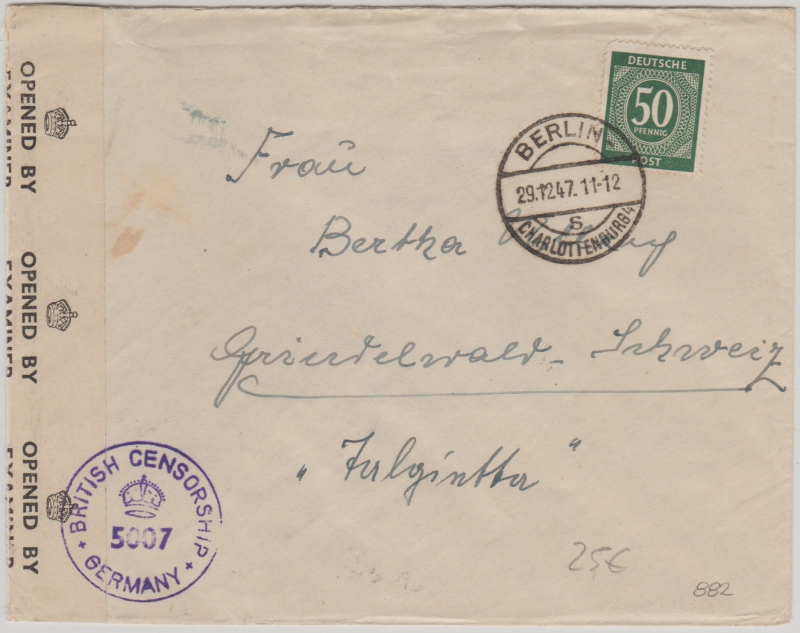 OPENED BY
EXAMINER
OPENED BY
EXAMINER
OPENED BY
EXAMINER
DEUTSCHE
50
PFENNIG
POST
BERLIN
29.12.47. 11-12
s
CHARLOTTENBURG 4
Frau
Bertha
Grindelwald - Schweiz
BRITISH CENSORSHIP
5007
GERMANY
25€
882